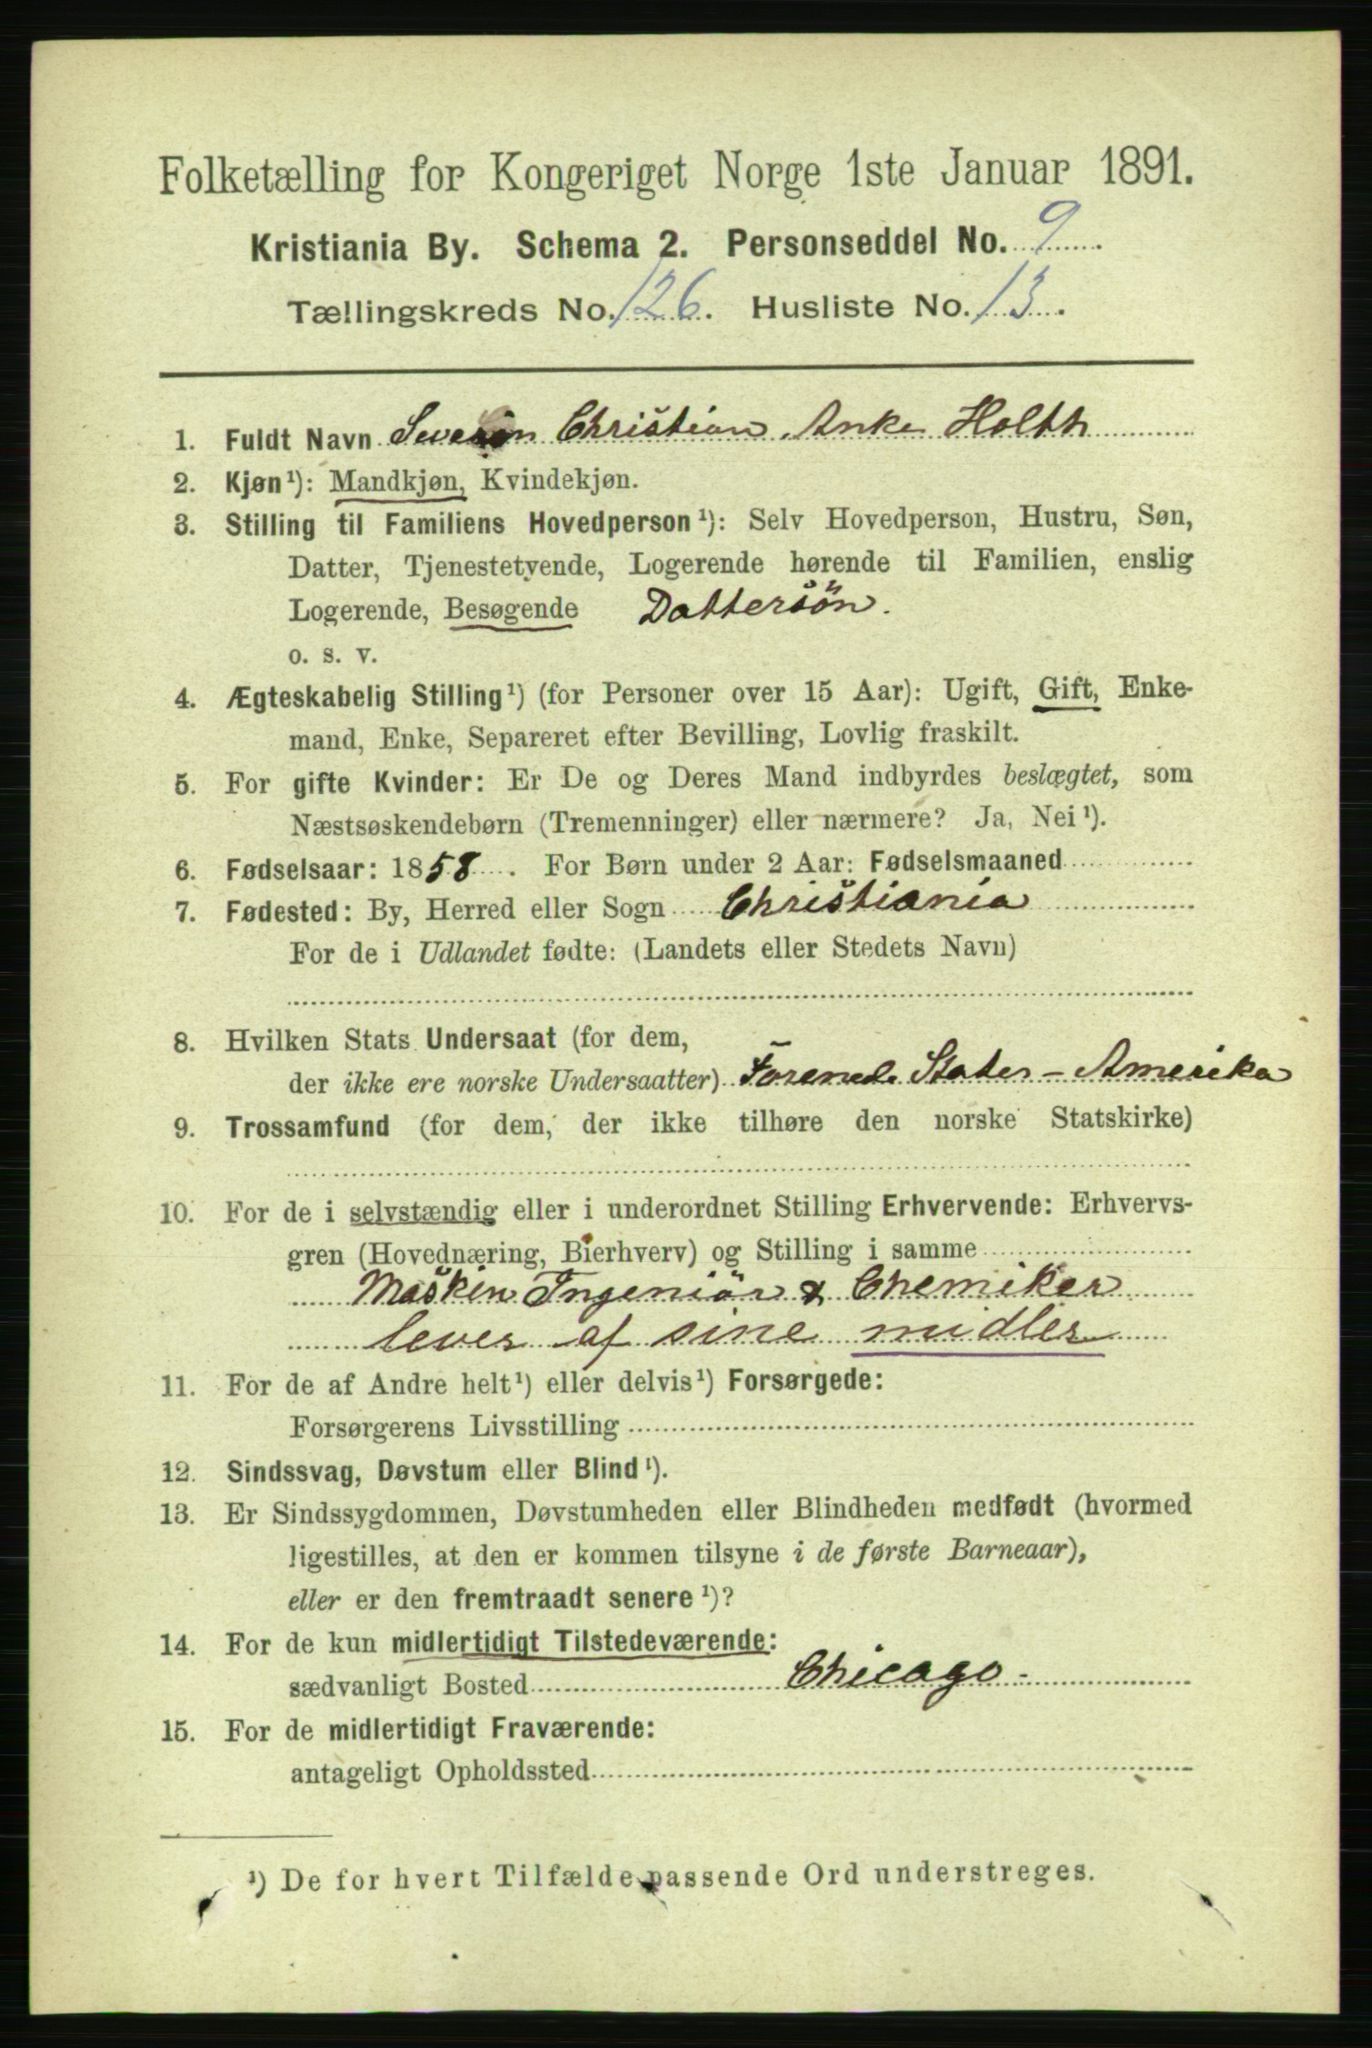 Folketælling for Kongeriget Norge 1ste Januar 1891.
Kristiania By. Schema 2. Personseddel No. 9.
Tællingskreds No. 126. Husliste No. 13.
1. Fuldt Navn Severin Christian Anke Holth
2. Kjøn¹): Mandkjøn, Kvindekjøn.
3. Stilling til Familiens Hovedperson¹): Selv Hovedperson, Hustru, Søn,
Datter, Tjenestetyende, Logerende hørende til Familien, enslig
Logerende, Besøgende Dattersön.
o. s. v.
4. Ægteskabelig Stilling¹) (for Personer over 15 Aar): Ugift, Gift, Enke-
mand, Enke, Separeret efter Bevilling, Lovlig fraskilt.
5. For gifte Kvinder: Er De og Deres Mand indbyrdes beslægtet, som
Næstsøskendebørn (Tremenninger) eller nærmere? Ja, Nei¹).
6. Fødselsaar: 1858. For Børn under 2 Aar: Fødselsmaaned
7. Fødested: By, Herred eller Sogn Christiania
For de i Udlandet fødte: (Landets eller Stedets Navn)
8. Hvilken Stats Undersaat (for dem,
der ikke ere norske Undersaatter) Forenede Stater - Amerika
9. Trossamfund (for dem, der ikke tilhøre den norske Statskirke)
10. For de i selvstændig eller i underordnet Stilling Erhvervende: Erhvervs-
gren (Hovednæring, Bierhverv) og Stilling i samme
Maskin Ingeniör & Chemiker
lever af sine midler
11. For de af Andre helt¹) eller delvis¹) Forsørgede:
Forsørgerens Livsstilling
12. Sindssvag, Døvstum eller Blind¹).
13. Er Sindssygdommen, Døvstumheden eller Blindheden medfødt (hvormed
ligestilles, at den er kommen tilsyne i de første Barneaar),
eller er den fremtraadt senere¹)?
14. For de kun midlertidigt Tilstedeværende:
sædvanligt Bosted Chicago -
15. For de midlertidigt Fraværende:
antageligt Opholdssted
¹) De for hvert Tilfælde passende Ord understreges.